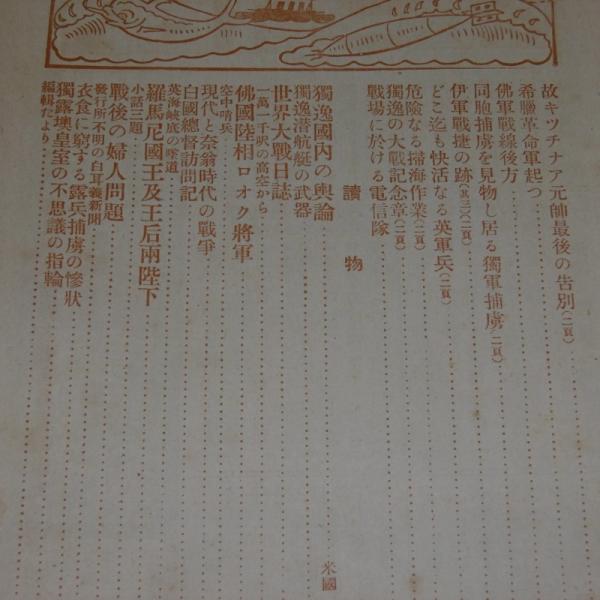 故キツチナア元帥最後の告別(二頁)
希臘革命軍起つ
佛軍戰線後方
同胞捕虜を見物し居る獨軍捕虜(二頁)
伊軍戰捷の跡(其三)(二頁)
どこ迄も快活なる英軍兵(二頁)
危險なる掃海作業(二頁)
獨逸の大戰記念章(二頁)
戰場に於ける電信隊
讀物
獨逸國內の輿論 米國
獨逸潜航艇の武器
世界大戰日誌
一萬一千呎の高空から
佛國陸相ロオク將軍
空中哨兵
現代と奈翁時代の戰爭
白國總督訪問記
英海峽底の墜道
羅馬尼國王及王后兩陛下
小話三題
戰後の婦人問題
發行所不明の白耳義新聞
衣食に窮する露兵捕虜の慘狀
獨露墺皇室の不思議の指輪
編輯たより